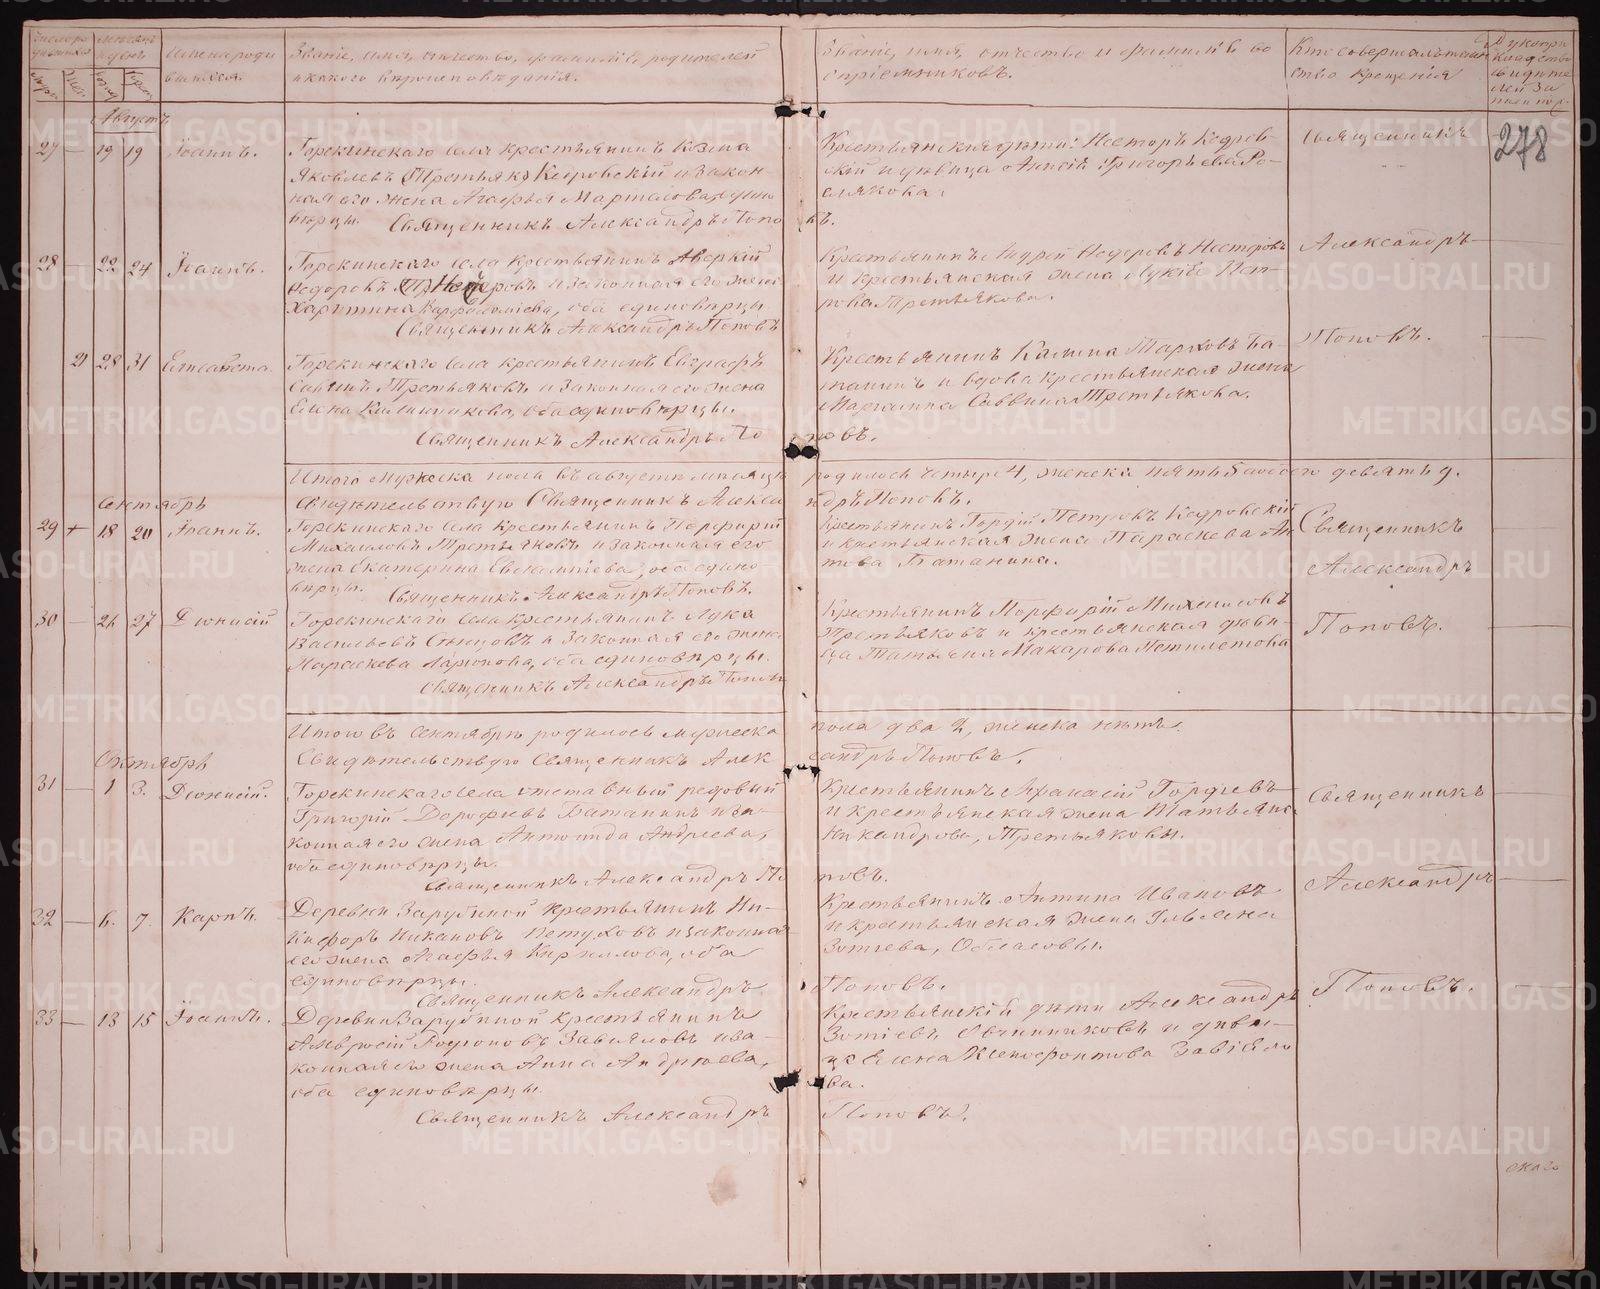 Имена роди
вшихся.
Званіе, имя, отчество, фамилія, родителей
и какого вѣроисповѣданія.
Званіе, имя, отчество и фамилія во
спріемниковъ.
Кто совершалъ таин
ство крещенія
Августъ
278
27 — 19 19 Іоаннъ.
Горскинскаго села крестьянинъ Козма
Яковлевъ Кедровскій и закон-
ная его жена Агафья едино
вѣрцы. Священникъ Александръ Попо
въ.
Крестьянскія дѣти: Несторъ Кедров-
скій и дѣвица Григорьева Ро-
слякова.
Священникъ
28 — 22 24 Іоаннъ.
Горскинскаго села крестьянинъ Аверкій
Ѳедоровъ и законная его жена
Харитина Варфоломіева, оба единовѣрцы
Священникъ Александръ Поповъ
Крестьянинъ Андрей Ѳедоровъ
и крестьянская жена Пет-
рова Третьякова.
Александръ
21 28 31 Елисавета.
Горскинскаго села крестьянинъ Евграфъ
Саввинъ Третьяковъ и законная его жена
Елена Калинникова, оба единовѣрцы.
Священникъ Александръ По
повъ.
Крестьянинъ Марковъ Ба-
танинъ и вдова крестьянская жена
Маріанна Саввина Третьякова.
Поповъ.
Итого мужеска пола въ августѣ мѣсяцѣ
родилось четыре 4, женска пять 5 а обоего девять 9.
Свидѣтельствую Священникъ Алекса
ндръ Поповъ.
Сентябрь
29 + 18 20 Іоаннъ.
Горскинскаго села крестьянинъ Порфирій
Михайловъ Третьяковъ и законная его
жена Екатерина Евлампіева, оба едино-
вѣрцы. Священникъ Александръ Поповъ.
Крестьянинъ Гордій Петровъ Кедровскій
и крестьянская жена Параскева
Батанина.
Священникъ
Александръ
30 — 26 27 Діонисій
Горскинскаго села крестьянинъ Лука
Васильевъ и законная его жена
Параскева Ларіонова, оба единовѣрцы.
Священникъ Александръ Поповъ
Крестьянинъ Порфирій Михайловъ
Третьяковъ и крестьянская дѣви-
ца Татьяна Макарова
Поповъ.
Итого въ Сентябрѣ родилось мужеска
пола два 2, женска нѣтъ.
Свидѣтельствую Священникъ Алек
сандръ Поповъ.
Октябрь
31 — 1 3. Діонисій.
Горскинскаго села отставный рядовый
Григорій Дорофѣевъ Батанинъ и за-
конная его жена Антонида Андреева,
оба единовѣрцы.
Священникъ Александръ По
повъ.
Крестьянинъ Аѳанасій Гордѣевъ
и крестьянская жена Татьяна
Никандрова, Третьяковы.
Священникъ
32 — 6. 7. Карпъ.
Деревни Зарубиной крестьянинъ Ни-
кифоръ Никановъ Пѣтуховъ и законная
его жена Агафья Кириллова, оба
единовѣрцы.
Священникъ Александръ
Поповъ.
Крестьянинъ Антипа Ивановъ
и крестьянская жена Ульяна
Зотѣева, Обласовы.
Александръ
33 — 13 15 Іоаннъ.
Деревни Зарубиной крестьянинъ
Амвросій Родіоновъ Завьяловъ и за-
конная его жена Анна Андреева,
оба единовѣрцы.
Священникъ Александръ
Поповъ.
Крестьянскій дѣти Александръ
Зотіевъ Овчинниковъ и дѣви-
ца Елена Ксенофонтова Завіяло
ва.
Поповъ.
METRIKI.GASO-URAL.RU